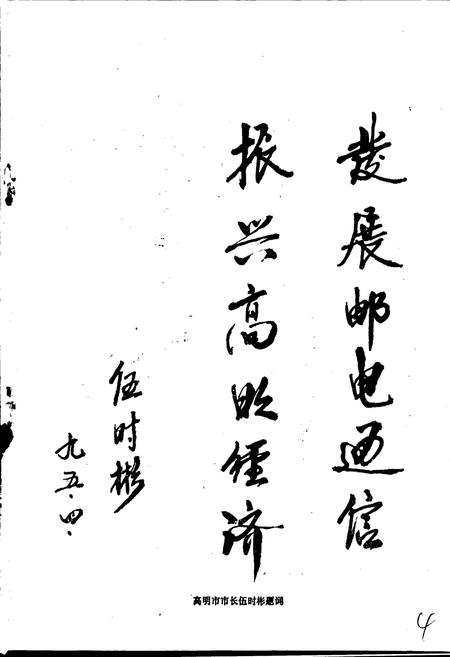 發展邮电通信
振兴高明经济
伍时彬
九五·四·
高明市市长伍时彬题词
4